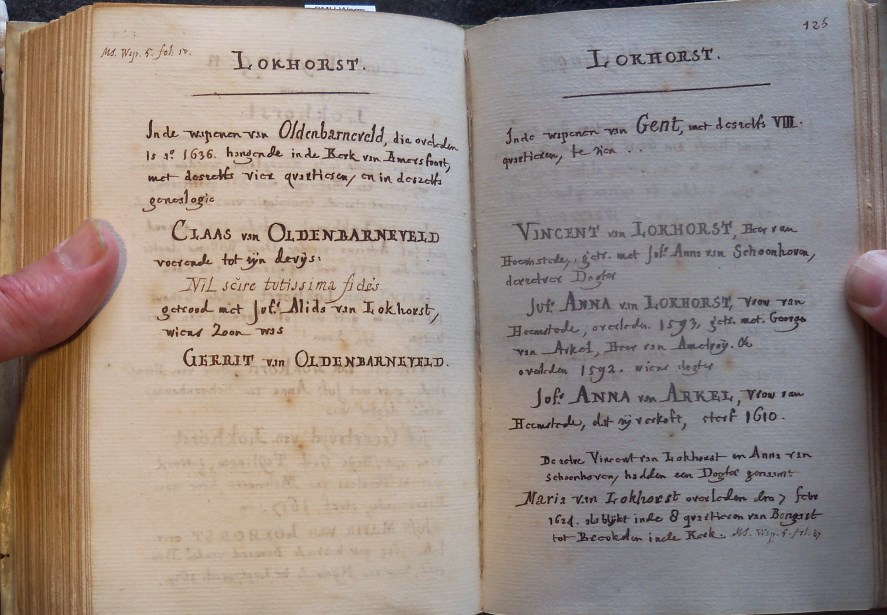 Ms. Wap. 5. fol. 12.
LOKHORST.
Inde wapenen van Oldenbarneveld, die overleden
is aº. 1636. hangende inde Kerk van Amersfoort,
met deszelfs vier quartieren, en in deszelfs
genealogie
CLAAS van OLDENBARNEVELD
voerende tot zijn devijs:
Nil scire tutissima fides
getrood met Jufr. Alida van Lokhorst,
wiens Zoon was
GERRIT van OLDENBARNEVELD.
125
LOKHORST.
Inde wapenen van Gent, met deszelfs VIII.
quartieren, te zien . .
VINCENT van LOKHORST, Heer van
Heemstede, getr. met Jofr. Anna van Schoonhoven,
derzelver Dogter
Jufr. ANNA van LOKHORST, Vrow van
Heemstede, overleden. 1593, getr. met. George
van Arkel, Heer van Ameroij. &
overleden 1592. wiens dogter
Jofr. ANNA van ARKEL, Vrow van
Heemstede, dat zij verkoft, sterf 1610.
Dezelve Vincent van Lokhorst en Anna van
Schoonhoven, hadden een Dogter genaamt
Maria van Lokhorst overleden den 7 febr
1624. als blijkt inde 8 quartieren van Bongart
tot Beeokden inde Kerk. Ms. Wap. 5. fol. 27